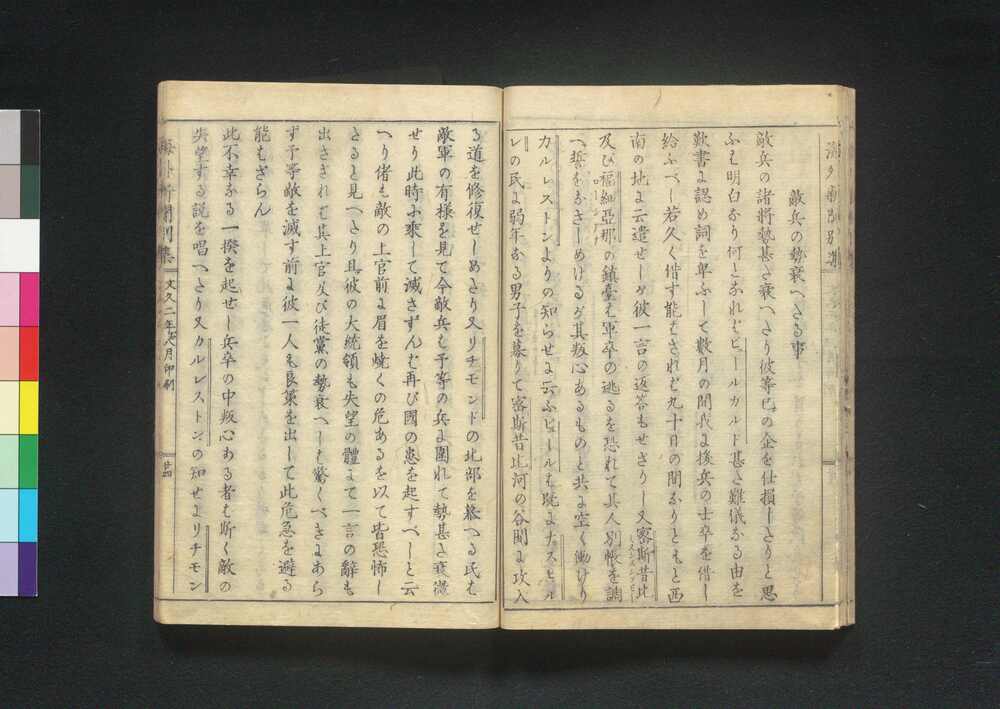 敵兵の勢衰へたる事
敵兵の諸将勢甚た衰へたり彼等己の企を仕損したりと思
ふも明白なり何となれはビールカルド甚た難儀なる由を
歎書に認め詞を卑ふして数月の間我に後兵の士卒を借し
給ふべし若久く借す能はされど九十日の間なりともと西
南の地に云遣せしが彼一言の返答もせさりし又密斯昔比
及び福紐亜那の鎮臺も軍卒の逃るを恐れて其人別帳を調
へ誓をなさしめけるが其叛心あるものと共に空く働けり
カルレストンよりの知らせに云ふビールも既にナスヒル
レの民に弱年なる男子を募りて密斯昔比河の谷間に攻入
る道を修復せしめたり又リチモンドの北部を教へる民も
敵軍の有様を見て今敵兵も予等の兵に圍れて勢甚た衰微
せり此時に乗して滅さずんも再び國の患を起すべしと云
へり偖も敵の上官前に眉を焼くの危あるを以て皆恐怖し
たると見へたり且彼の大統領も失望の體にて一言の辭も
出さゝれは其上官及び徒黨の勢衰へしも驚くべきにあら
ず予等敵を滅す前に彼一人も良策を出して此危急を避る
能もざらん
此不幸なる一揆を起せし兵卒の中叛心ある者も斯く敵の
失望する説を唱へたり又カルレストンの知せにリチモン
海外新聞別集
文久二年八月印刻
廿四